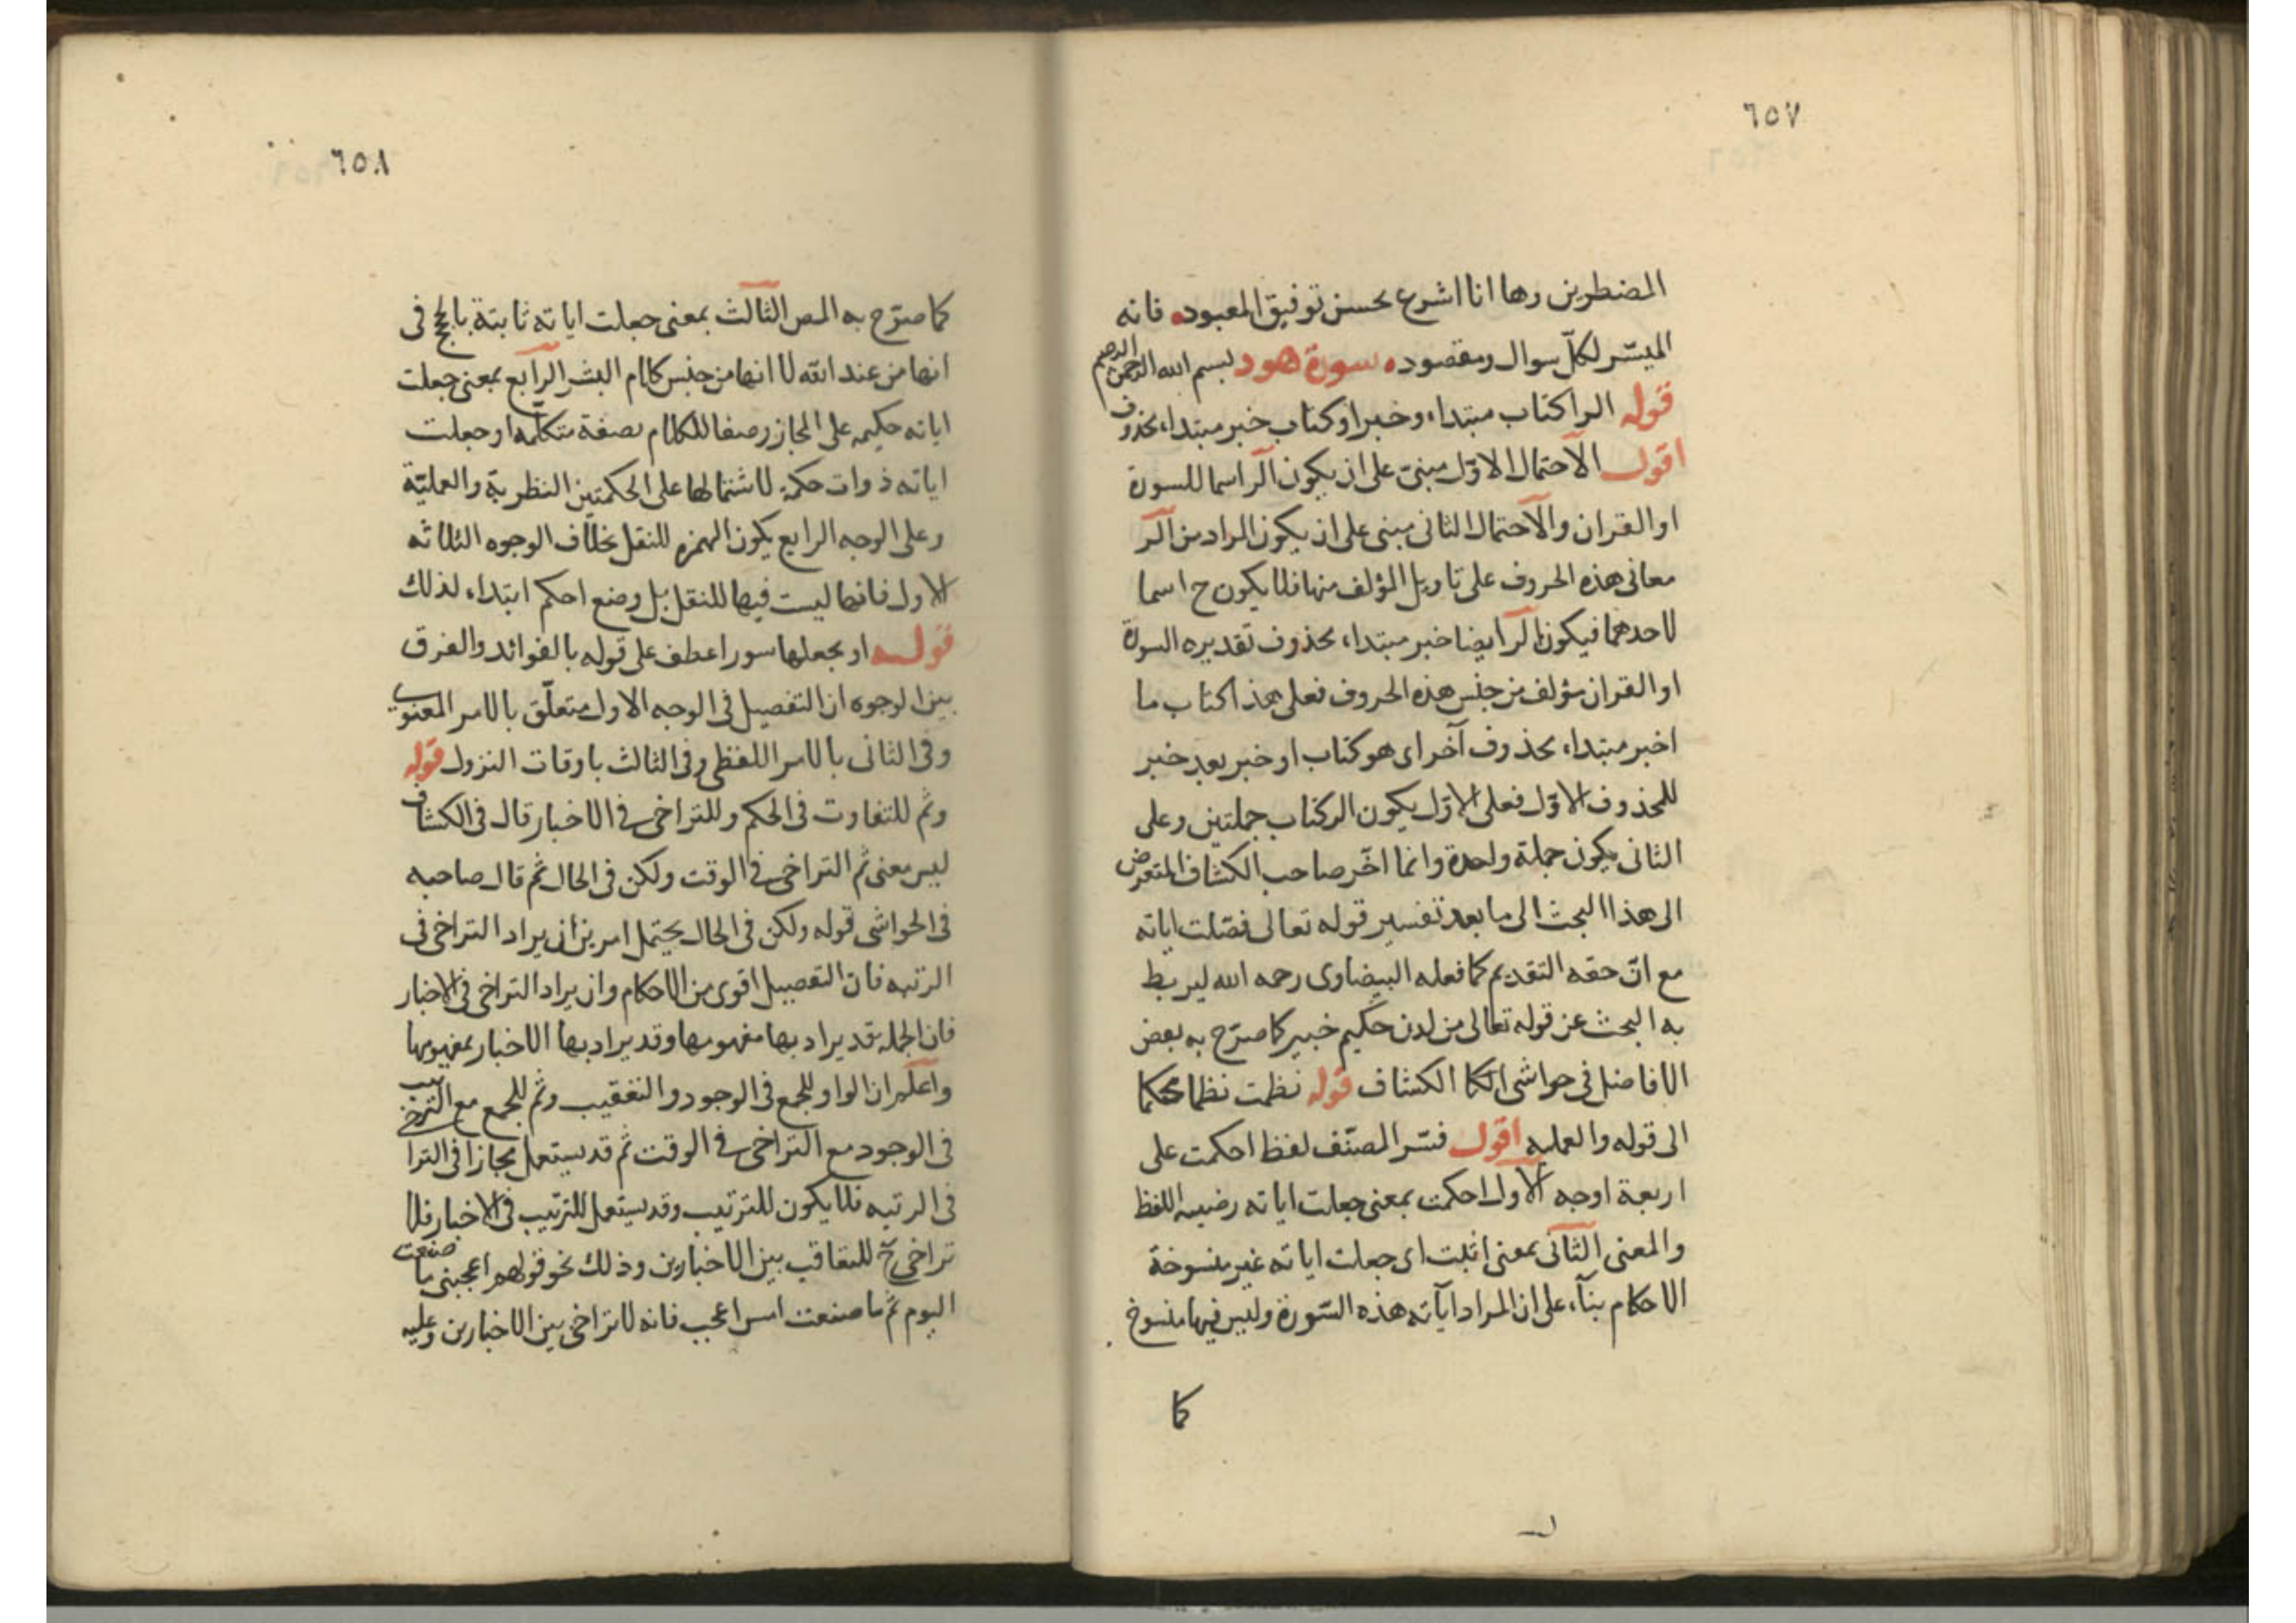 ٦٥٧
المضطرين وها انا اشرع بحسن توفيق المعبود فانه
الميسّر لكلّ سوال ومقصود سورة هود بسم الله الرحمن الرحيم
قوله الر اكتاب مبتداء وخبر او كتاب خبر مبتداء محذوف
اقول الاحتمال الاوّل مبنىّ على ان يكون الر اسما للسورة
او القران والاحتمال الثانى مبنى على ان يكون المراد من الر
معانى هذه الحروف على تاويل المؤلف منها فلا يكون ح اسما
لاحدهما فيكون الر ايضا خبر مبتداء محذوف تقديره السورة
او القران مؤلف من جنس هذه الحروف فعلى هذا كتاب ما
اخبر مبتداء محذوف آخر اى هو كتاب او خبر بعد خبر
للمحذوف الاوّل فعلى الاوّل يكون الر كتاب جملتين وعلى
الثانى يكون جملة واحدة وانما اخّر صاحب الكشاف المتعرض
الى هذا البحث الى ما بعد تفسير قوله تعالى فصّلت اياته
مع انّ حقه التقديم كما فعله البيضاوى رحمه الله ليربط
به البحث عن قوله تعالى من لدن حكيم خبير كما صرّح به بعض
الافاضل فى حواشى الكا الكشاف قوله نظمت نظما محكما
الى قوله والعمليه اقول فسّر المصنّف لفظ احكمت على
اربعة اوجه الاول احكمت بمعنى جعلت اياته رضيه اللفظ
والمعنى الثانى بمعنى اثبت اى جعلت اياته غير منسوخة
الاحكام بناء على ان المراد اياته هذه السّورة وليس فيها منسوخ
كما
٦٥٨
كما صرّح به المص الثالث بمعنى جعلت اياته ثابتة بالحجج فى
انها من عند الله لا انها من جنس كلام البشر الرابع بمعنى جعلت
اياته حكيمه على المجاز وصفا للكلام بصفة متكلّمه او جعلت
اياته ذوات حكمة لاشتمالها على الحكمتين النظريّة والعمليّة
وعلى الوجه الرابع يكون الهمزه للنقل بخلاف الوجوه الثلاثه
الاول فانها ليست فيها للنقل بل وضع احكم ابتداء لذلك
قوله او بجعلها سورا عطف على قوله بالفوائد والفرق
بين الوجوه ان التفصيل فى الوجه الاول متعلّق بالامر المعنوى
وفى الثانى بالامر اللفظى وفى الثالث باوقات النزول قوله
وثم للتفاوت فى الحكم وللتراخى فى الاخبار قال فى الكشاف
ليس معنى ثم التراخى فى الوقت ولكن فى الحال ثم قال صاحبه
فى الحواشى قوله ولكن فى الحال يحتمل امرين ان يراد التراخى فى
الرتبه فان التفصيل اقوى من الاحكام وان يراد التراخى فى الاخبار
فان الجمله قد يراد بها مفهومها وقد يراد بها الاخبار بمفهومها
واعلم ان الواو للجمع فى الوجود والتعقيب وثم للجمع مع الترتيب
فى الوجود مع التراخى فى الوقت ثم قد يستعمل مجازا فى التراخى
فى الرتبه فلا يكون للترتيب وقد يستعمل للترتيب فى الاخبار فلا
تراخى ح للتعاقب بين الاخبارين وذلك نحو قولهم اعجبنى ما صنعت
اليوم ثم ما صنعت امس اعجب فانه لا تراخى بين الاخبارين وعليه